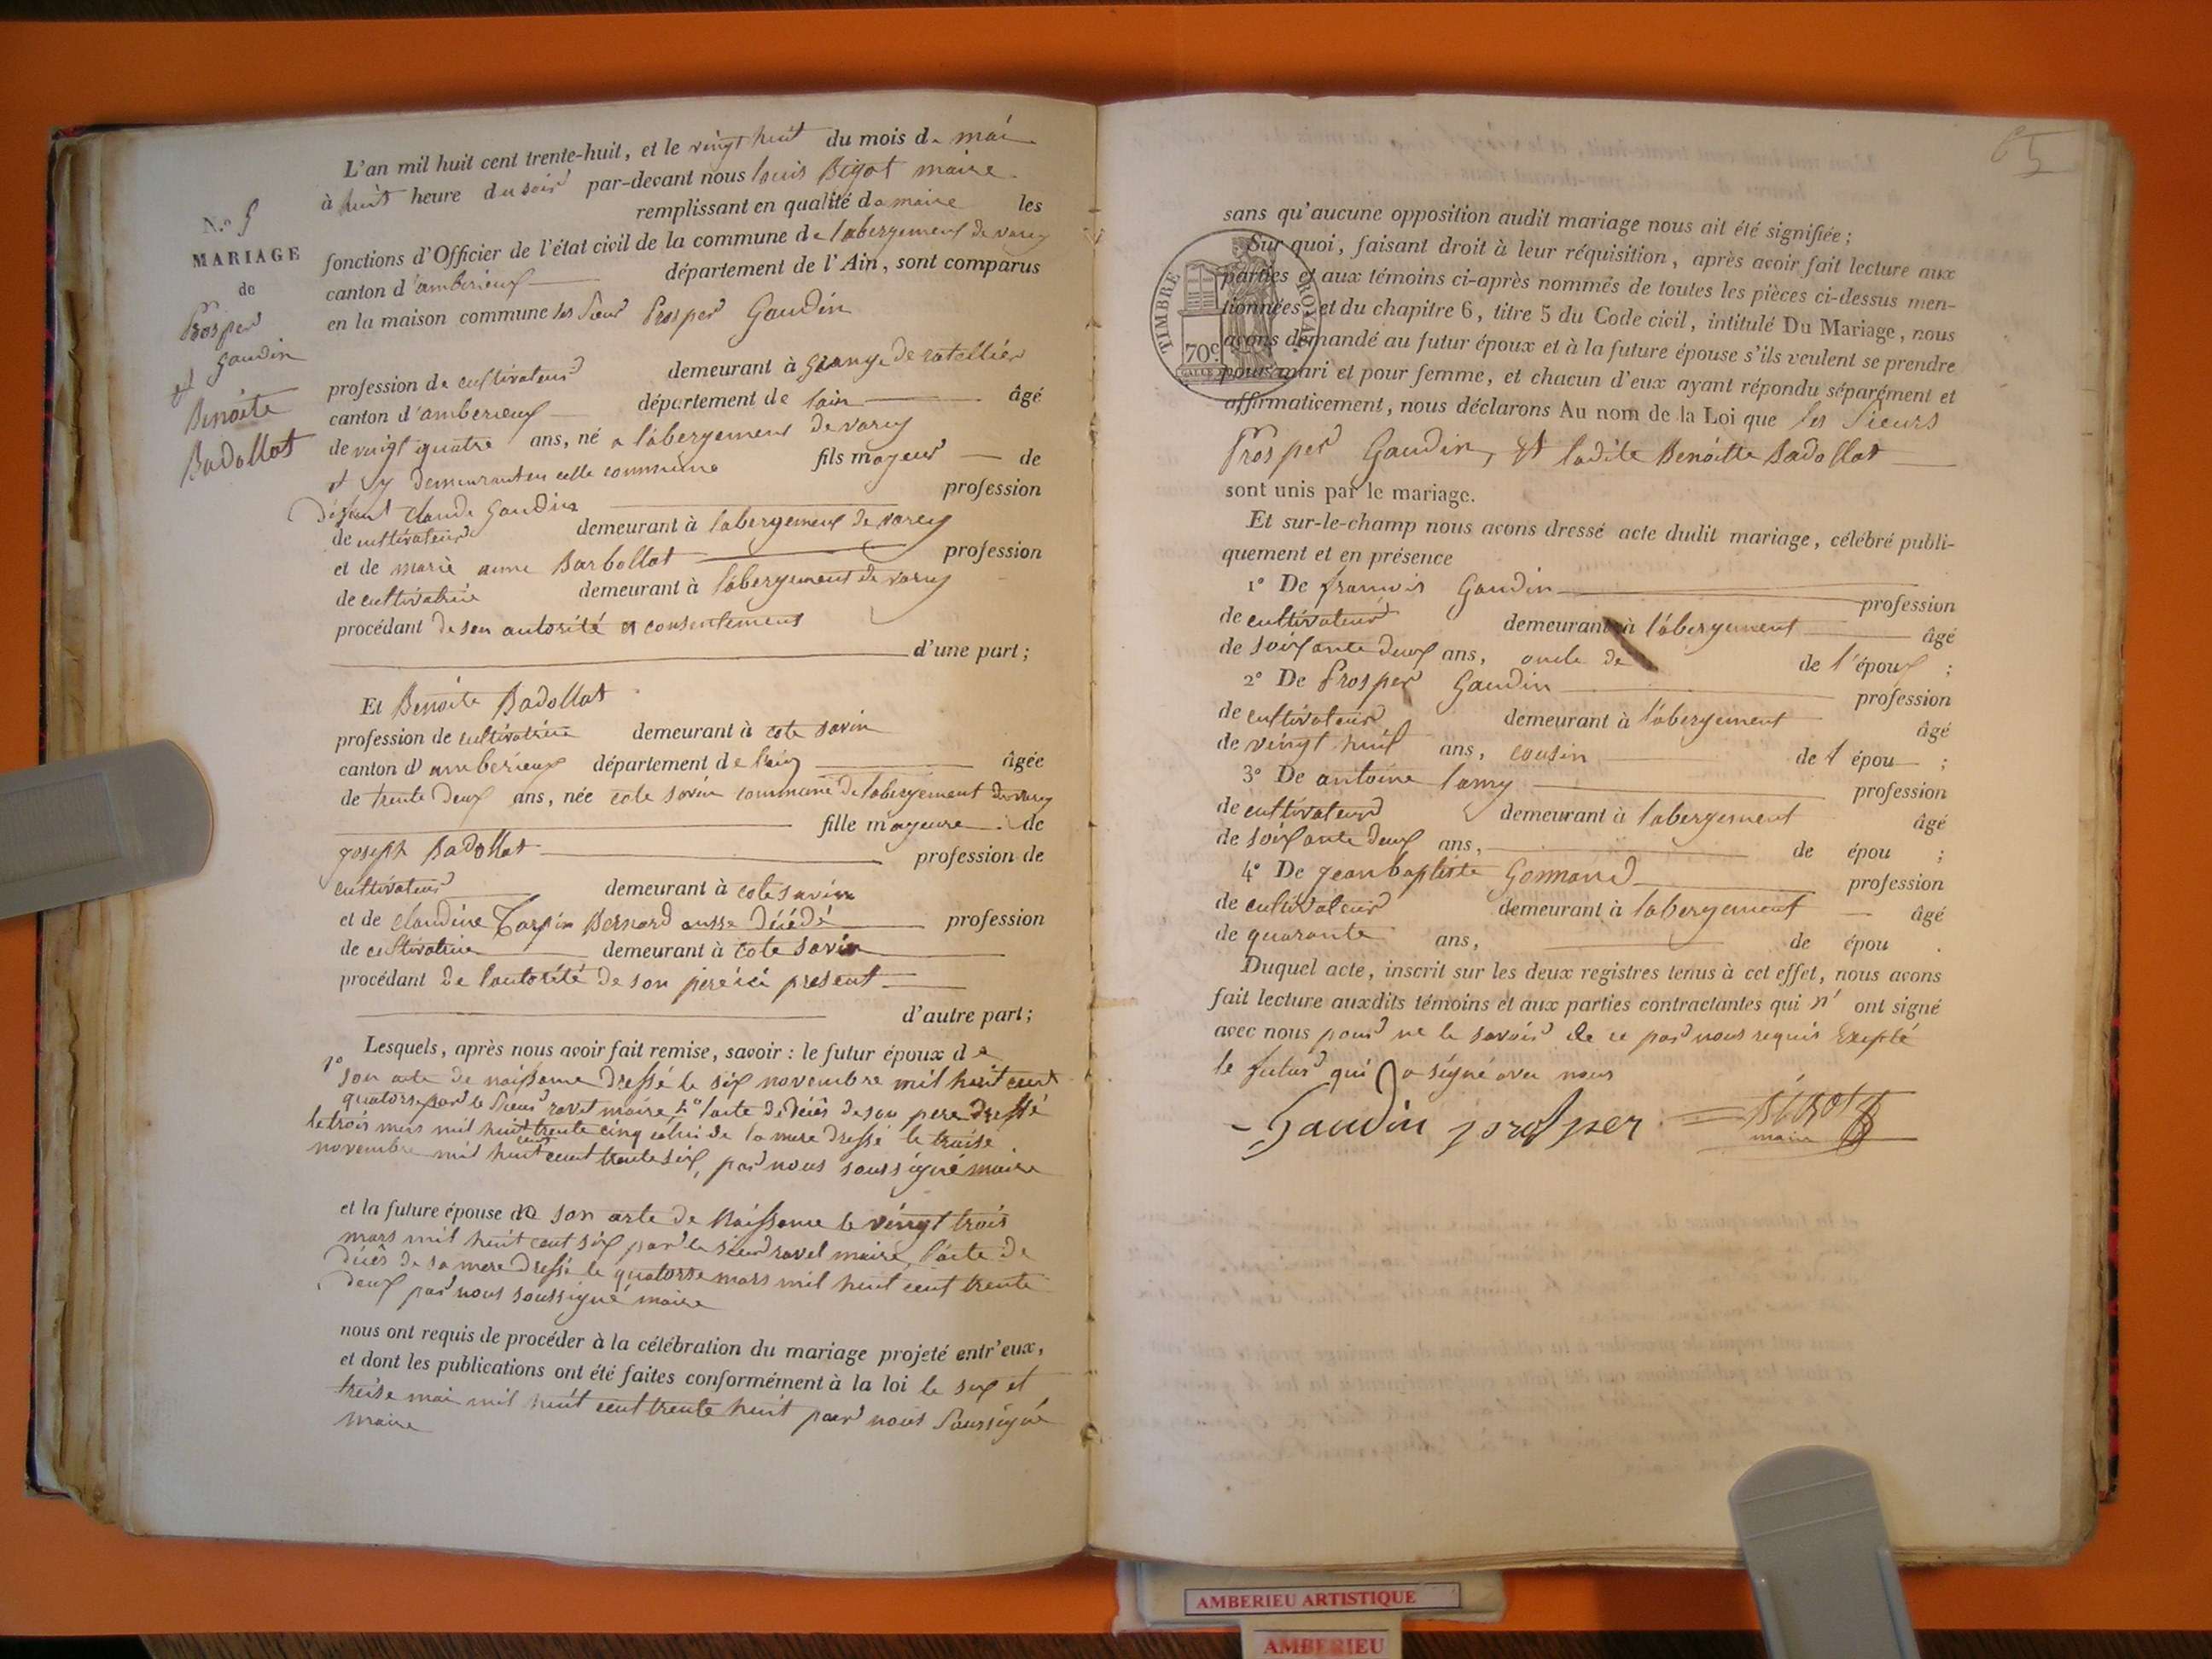 L'an mil huit cent trente-huit, et le vingt huit du mois de mai
à huit heure du soir par-devant nous louis Bigot maire
remplissant en qualité de maire les
fonctions d'Officier de l'état civil de la commune de labergement de varey
canton d'amberieux département de l'Ain, sont comparus
en la maison commune les Sieur Prosper Gaudin
N.o 5
MARIAGE
de
Prosper
Gaudin
et
Benoite
Badollat
profession de cultivateur demeurant à Grange de ratellier
canton d'amberieux département de lain âgé
de vingt quatre ans, né a labergement de varey
et y demeurant en celle commune fils mayeur de
défunt claude Gaudin profession
de cultivateur demeurant à labergement de varey
et de marie anne Barbollat profession
de cultivatrice demeurant à labergement de varey
procédant de son autorité et consentement
d'une part;
Et Benoite Badollat
profession de cultivatrice demeurant à cote savin
canton d'amberieux département de l'ain âgée
de trente deux ans, née cote savin commune de labergement de varey
fille mayeure de
joseph Badollat profession de
cultivateur demeurant à cote savin
et de claudine Tarpin Bernard ausse décédé profession
de cultivatrice demeurant à cote savin
procédant de lautorité de son pere ici present
d'autre part;
Lesquels, après nous avoir fait remise, savoir: le futur époux de
1o son acte de naissance dressé le six novembre mil huit cent
quatorse par le Sieur ravet maire 2o lacte de décès de son pere dressé
le trois mars mil huit cent trente cinq celui de la mere dressé le traise
novembre mil huit cent trente six, par nous soussigné maire
et la future épouse de son acte de Naissance le vingt trois
mars mil huit cent six par le sieur ravel maire, l'acte de
décès de sa mere dressé le quatorse mars mil huit cent trente
deux par nous soussigné maire
nous ont requis de procéder à la célébration du mariage projeté entr'eux,
et dont les publications ont été faites conformément à la loi le six et
treise mai mil huit cent trente huit par nous Soussigné
maire
65
sans qu'aucune opposition audit mariage nous ait été signifiée;
Sur quoi, faisant droit à leur réquisition, après avoir fait lecture aux
parties et aux témoins ci-après nommés de toutes les pièces ci-dessus men-
tionnées, et du chapitre 6, titre 5 du Code civil, intitulé Du Mariage, nous
avons demandé au futur époux et à la future épouse s'ils veulent se prendre
pour mari et pour femme, et chacun d'eux ayant répondu séparément et
affirmativement, nous déclarons Au nom de la Loi que les Sieurs
TIMBRE ROYAL
70c.
Prosper Gaudin, Et ladite Benoitte Badollat
sont unis par le mariage.
Et sur-le-champ nous avons dressé acte dudit mariage, célébré publi-
quement et en présence
1o De francois Gaudin profession
de cultivateur demeurant à labergement âgé
de soixante deux ans, oncle de de l'époux ;
2o De Prosper Gaudin profession
de cultivateur demeurant à labergement âgé
de vingt huit ans, cousin de l épou ;
3o De antoine lamy profession
de cultivateur demeurant à labergement âgé
de soixante deux ans, de épou ;
4o De jean baptiste Gonnand profession
de cultivateur demeurant à labergement âgé
de quarante ans, de épou .
Duquel acte, inscrit sur les deux registres tenus à cet effet, nous avons
fait lecture auxdits témoins et aux parties contractantes qui n' ont signé
avec nous pour ne le savoir de ce par nous requis Excepté
le futur qui a signé avec nous
Gaudin prosper Bigot
maire
AMBERIEU ARTISTIQUE
AMBERIEU